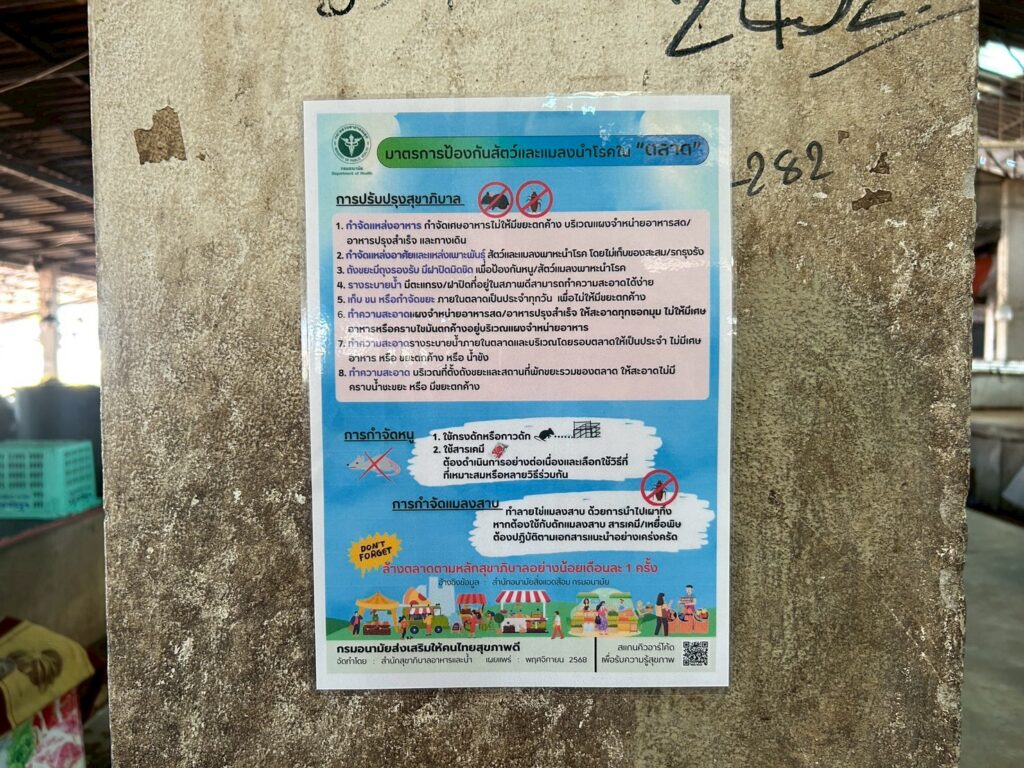 282
กรมอนามัย
Department of Health
มาตรการป้องกันสัตว์และแมลงนำโรคใน "ตลาด"
การปรับปรุงสุขาภิบาล
1. กำจัดแหล่งอาหาร กำจัดเศษอาหารไม่ให้มีขยะตกค้าง บริเวณแผงจำหน่ายอาหารสด/
อาหารปรุงสำเร็จ และทางเดิน
2. กำจัดแหล่งอาศัยและแหล่งเพาะพันธุ์ สัตว์และแมลงพาหะนำโรค โดยไม่เก็บของสะสม/รกรุงรัง
3. ถังขยะมีถุงรองรับ มีฝาปิดมิดชิด เพื่อป้องกันหนู/สัตว์แมลงพาหะนำโรค
4. รางระบายน้ำ มีตะแกรง/ฝาปิดที่อยู่ในสภาพดีสามารถทำความสะอาดได้ง่าย
5. เก็บ ขน หรือกำจัดขยะ ภายในตลาดเป็นประจำทุกวัน เพื่อไม่ให้มีขยะตกค้าง
6. ทำความสะอาดแผงจำหน่ายอาหารสด/อาหารปรุงสำเร็จ ให้สะอาดทุกซอกมุม ไม่ให้มีเศษ
อาหารหรือคราบไขมันตกค้างอยู่บริเวณแผงจำหน่ายอาหาร
7. ทำความสะอาดรางระบายน้ำภายในตลาดและบริเวณโดยรอบตลาดให้เป็นประจำ ไม่มีเศษ
อาหาร หรือ ขยะตกค้าง หรือ น้ำขัง
8. ทำความสะอาด บริเวณที่ตั้งถังขยะและสถานที่พักขยะรวมของตลาด ให้สะอาดไม่มี
คราบน้ำชะขยะ หรือ มีขยะตกค้าง
การกำจัดหนู
1. ใช้กรงดักหรือกาวดัก
2. ใช้สารเคมี
ต้องดำเนินการอย่างต่อเนื่องและเลือกใช้วิธีที่
ที่เหมาะสมหรือหลายวิธีร่วมกัน
การกำจัดแมลงสาบ
ทำลายไข่แมลงสาบ ด้วยการนำไปเผาทิ้ง
หากต้องใช้กับดักแมลงสาบ สารเคมี/เหยื่อพิษ
ต้องปฏิบัติตามเอกสารแนะนำอย่างเคร่งครัด
DON'T
FORGET
ล้างตลาดตามหลักสุขาภิบาลอย่างน้อยเดือนละ 1 ครั้ง
อ้างอิงข้อมูล : สำนักอนามัยสิ่งแวดล้อม กรมอนามัย
กรมอนามัยส่งเสริมให้คนไทยสุขภาพดี
จัดทำโดย : สำนักสุขาภิบาลอาหารและน้ำ เผยแพร่ : พฤศจิกายน 2568
สแกนคิวอาร์โค้ด
เพื่อรับความรู้สุขภาพ